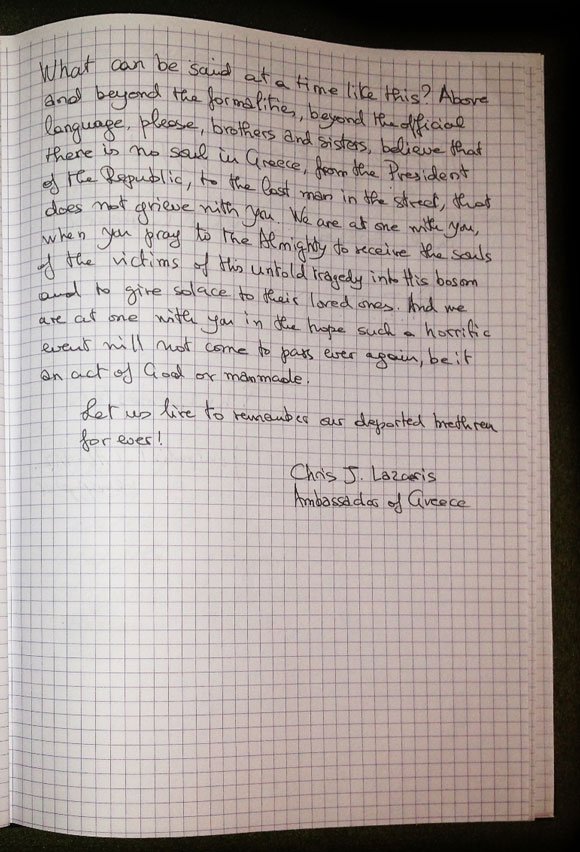 What can be said at a time like this? Above
and beyond the formalities, beyond the official
language, please, brothers and sisters, believe that
there is no soul in Greece, from the President
of the Republic, to the last man in the street, that
does not grieve with you. We are at one with you,
when you pray to the Almighty to receive the souls
of the victims of this untold tragedy into His bosom
and to give solace to their loved ones. And we
are at one with you in the hope such a horrific
event will not come to pass ever again, be it
an act of God or manmade.
Let us live to remember our departed brethren
for ever!
Chris J. Lazaris
Ambassador of Greece